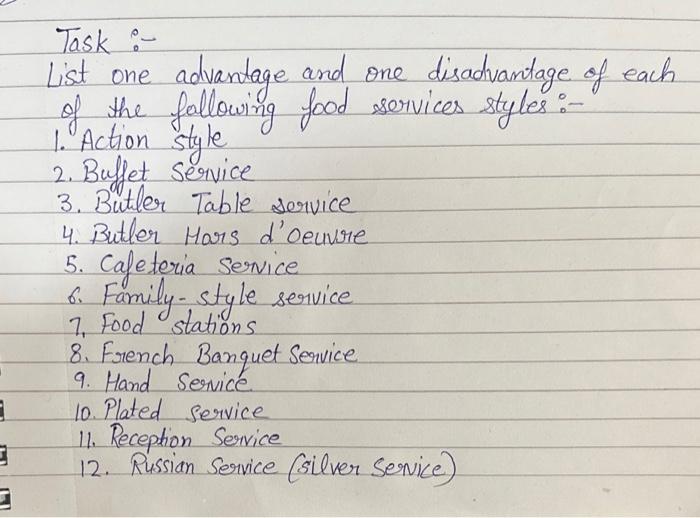 Task :-
List one advantage and one disadvantage of each
of the following food services styles :-
1. Action style
2. Buffet Service
3. Butler Table service
4. Butler Hors d'Oeuvre
5. Cafeteria Service
6. Family-style service
7. Food stations
8. French Banquet Service
9. Hand Service
10. Plated service
11. Reception Service
12. Russian Service (silver Service)